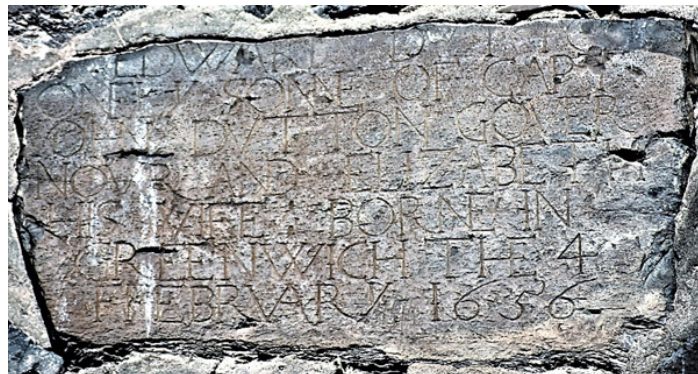 EDWARD DVTTO
ONELY SONE OF CAPT
OHN DVTTON GOVER
NOVR AND ELIZABETH
HIS WIFE BORNE IN
GREENWICH THE 4
FFEBRVARY 1656